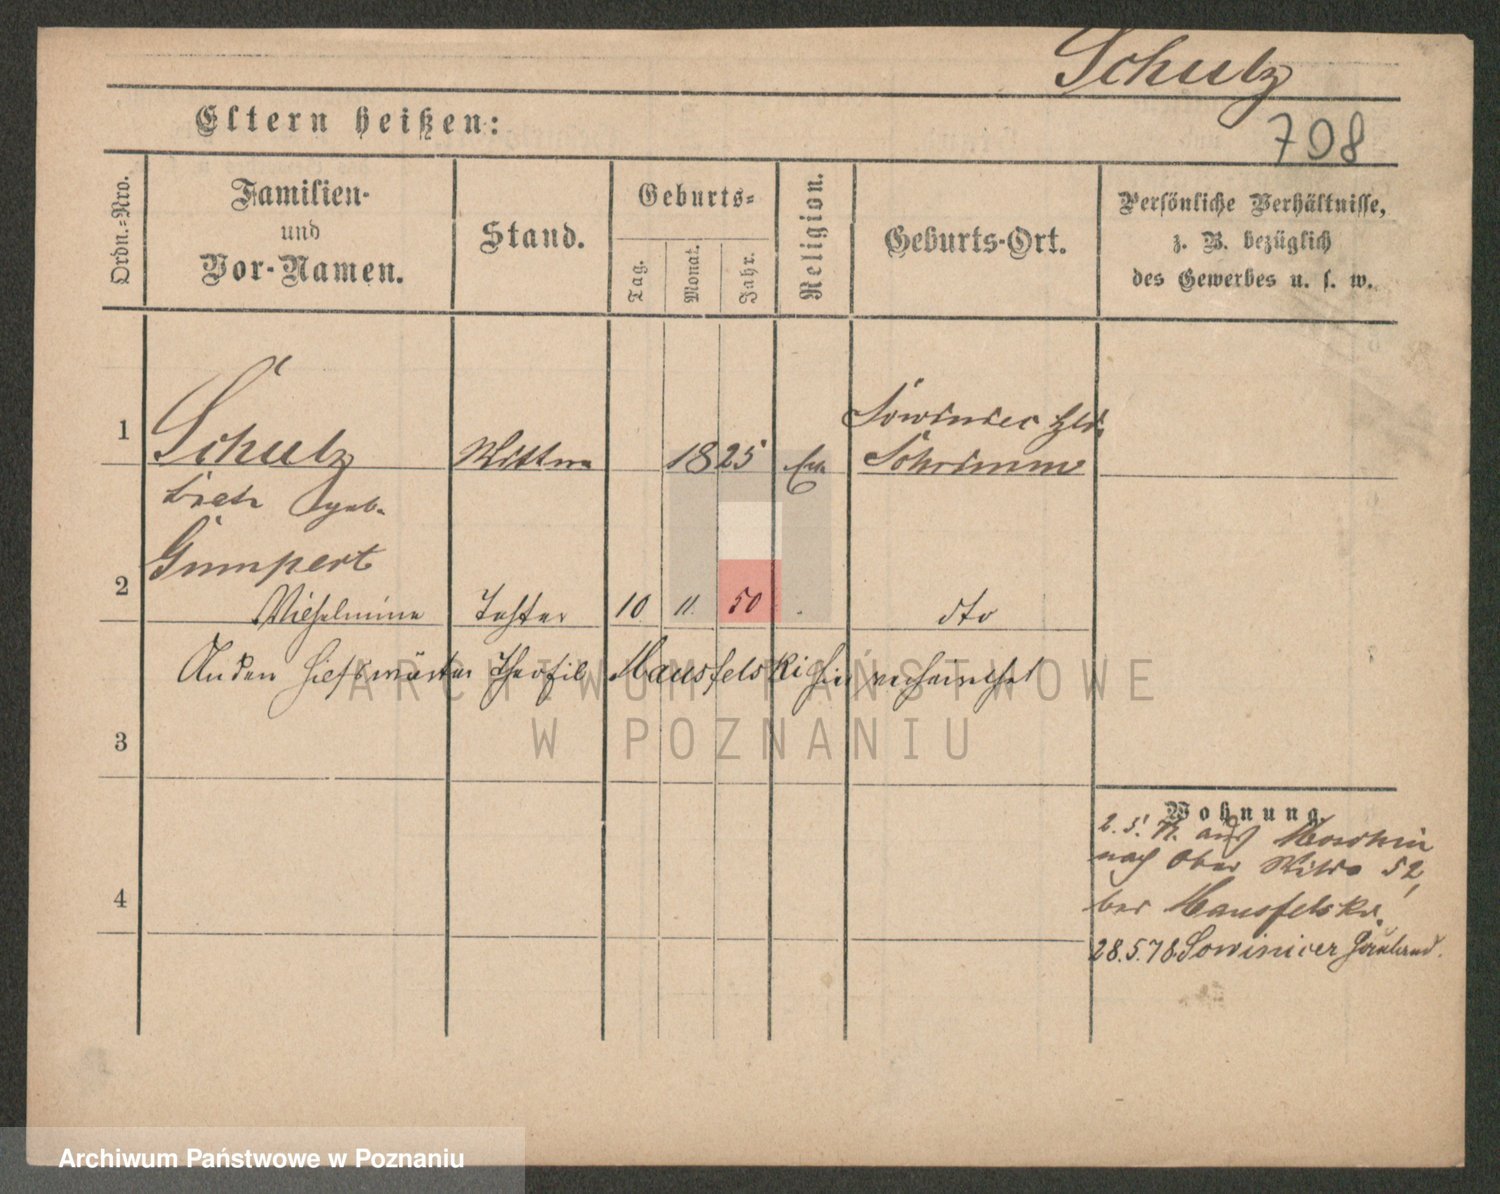 Schulz
Eltern heißen:
798
Ordn.=Nro.
Familien-
und
Vor-Namen.
Stand.
Geburts=
Tag.
Monat.
Jahr.
Religion.
Geburts-Ort.
Persönliche Verhältnisse,
z. B. bezüglich
des Gewerbes u. s. w.
Sowiniec Hld.
1 Schulz Wittwe 1825 Schrimm
geb.
Gumpert
2 Wilhelmine Tochter 10 11. 50 dto
An den Theofil Mansfelski hier verheirathet
ARCHIWUM PAŃSTWOWE
W POZNANIU
3
Wohnung
2.5. aus Moschin
nach Ober Wilda 52,
bei Mansfelski.
4
28.5.78 Sowiniecer
Archiwum Państwowe w Poznaniu